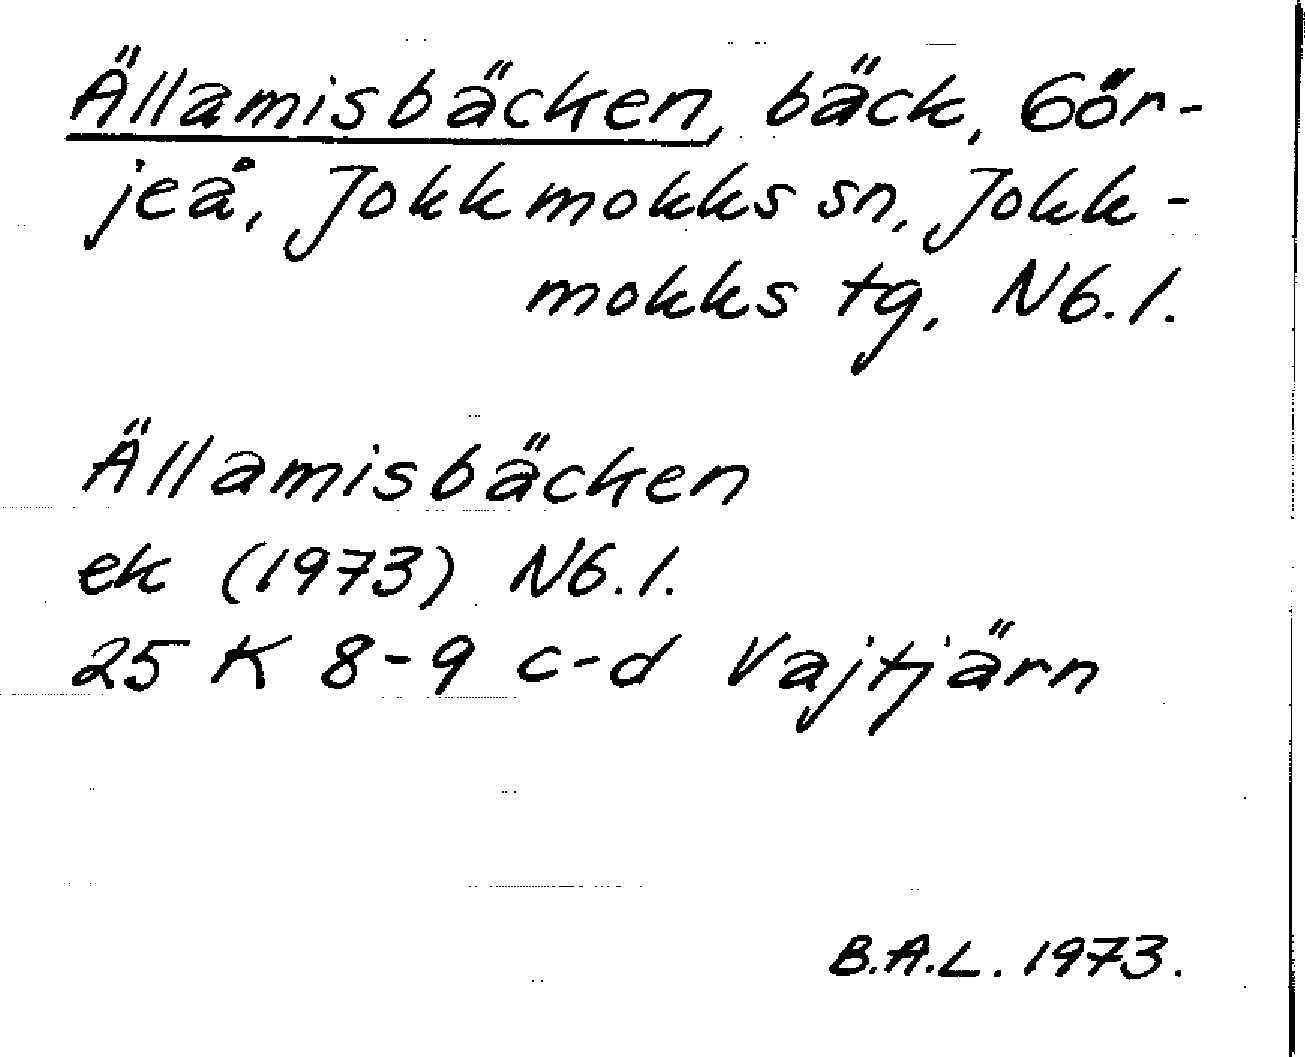 Ällamisbäcken, bäck, Gör-
jeå, Jokkmokks sn, Jokk-
mokks tg, Nb.l.
Ällamisbäcken
ek (1973) Nb.l.
25 K 8-9 c-d Vajtjärn
B.A.L. 1973.